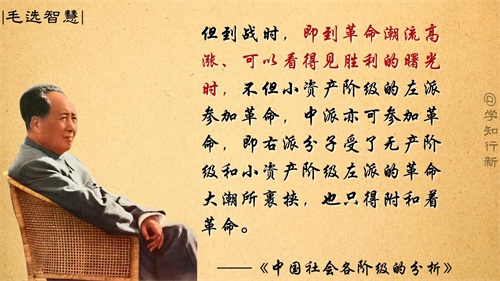 |毛选智慧|
但到战时，即到革命潮流高
涨、可以看得见胜利的曙光
时，不但小资产阶级的左派
参加革命，中派亦可参加革
命，即右派分子受了无产阶
级和小资产阶级左派的革命
大潮所裹挟，也只得附和着
革命。
——《中国社会各阶级的分析》
@学知行新